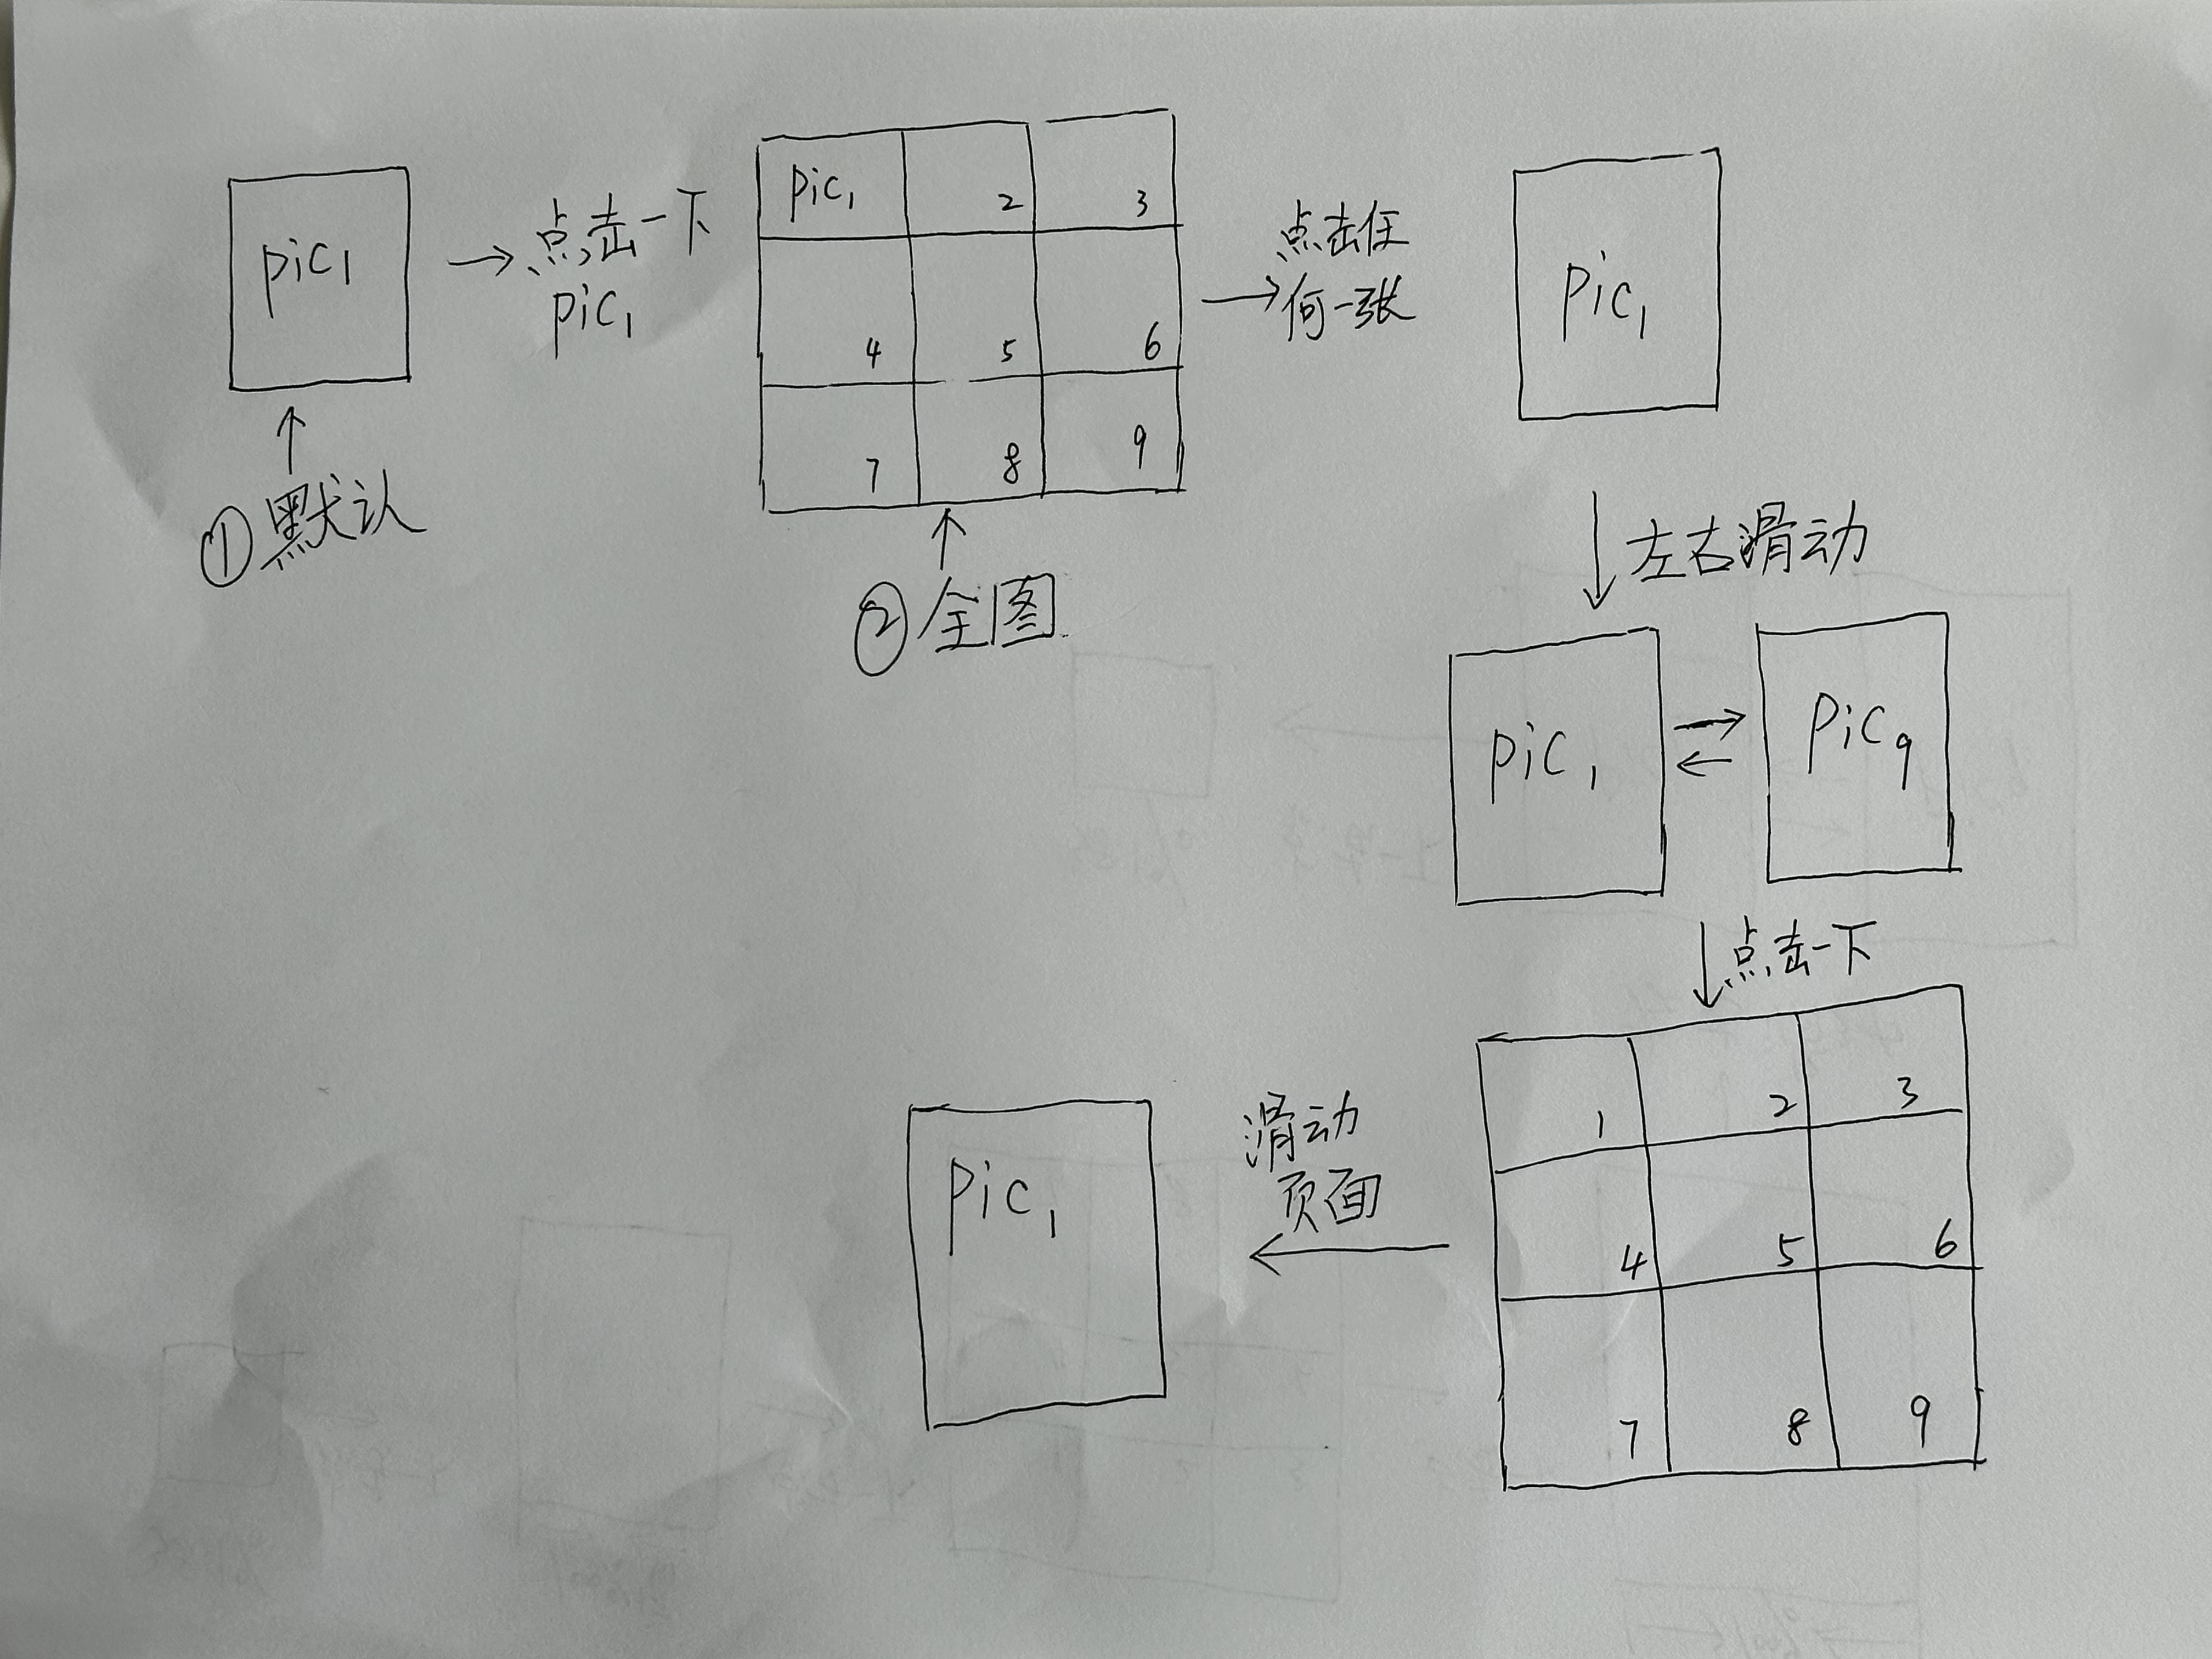 pic1
→点击一下
pic1
①默认
pic1 2 3
4 5 6
7 8 9
②全图
点击任
→何一张
pic1
↓左右滑动
pic1
pic9
↓点击一下
1 2 3
4 5 6
7 8 9
滑动
页面
pic1